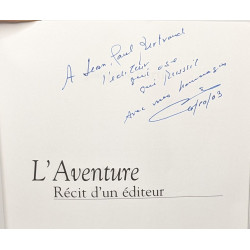 A Jean Paul Bertrand
l'éditeur qui ose
qui Réussit
Avec mes hommages
L'Aventure
Récit d'un éditeur